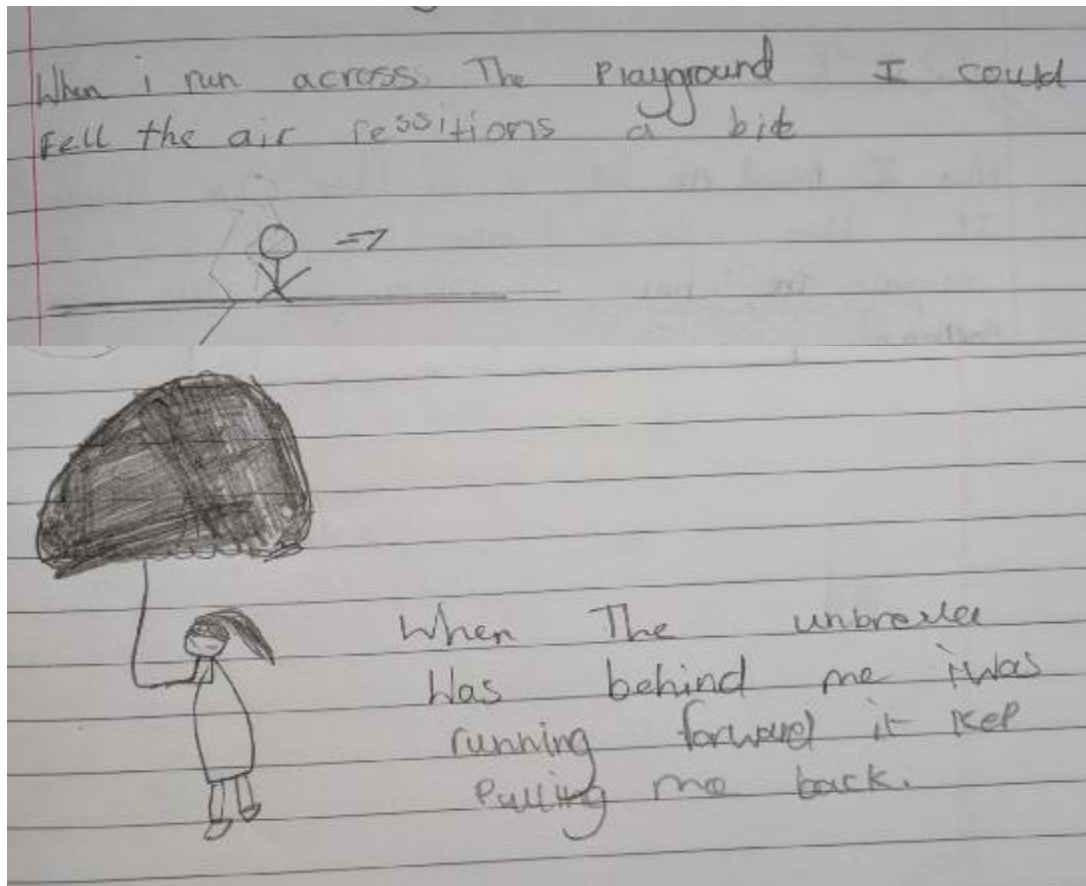 When i run across. The Playground I could
Fell the air ressitions a bit
When The unbrelee
Was behind me i was
running forward it kep
Pulling me back.